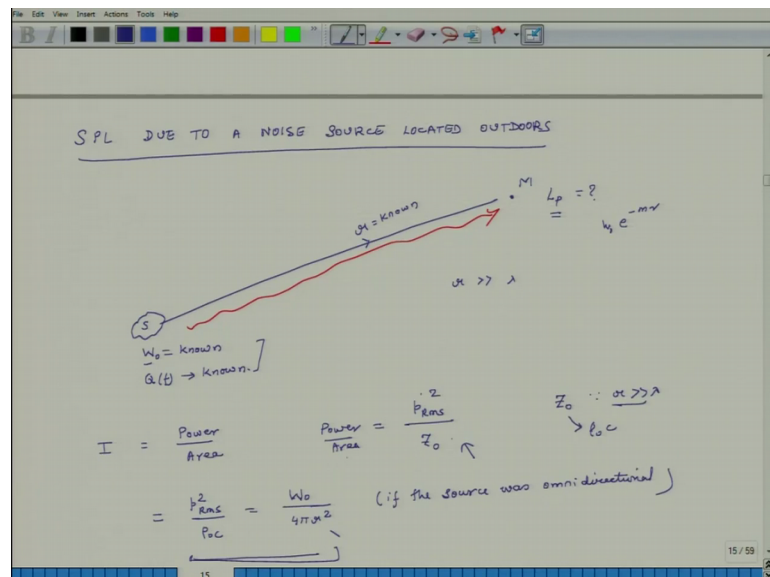 File Edit View Insert Actions Tools Help
B I
SPL DUE TO A NOISE SOURCE LOCATED OUTDOORS
M
r = known
Lp = ?
W0 e^-mr
r >> λ
S
W0 = known
Q(t) → known.
I = Power / Area
Power / Area = p²Rms / Z0
Z0 ∵ r >> λ
ρ0c
= p²Rms / ρ0c = W0 / 4πr² (if the source was omnidirectional)
15 / 59
15